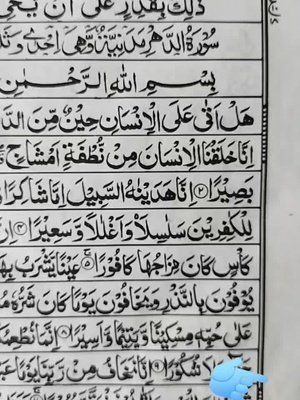 ذٰلِكَ بِقٰدِرٍ عَلٰٓى اَنْ
سُوْرَةُ الدَّهْرِ مَدَنِيَّةٌ وَّهِيَ اِحْدٰى
بِسْمِ اللّٰهِ الرَّحْمٰنِ
هَلْ اَتٰى عَلَى الْاِنْسَانِ حِيْنٌ مِّنَ
اِنَّا خَلَقْنَا الْاِنْسَانَ مِنْ نُّطْفَةٍ اَمْشَاجٍ
بَصِيْرًا ﴿۲﴾ اِنَّا هَدَيْنٰهُ السَّبِيْلَ اِمَّا شَاكِرًا
لِلْكٰفِرِيْنَ سَلٰسِلَا۟ وَاَغْلٰلًا وَّسَعِيْرًا ﴿۴﴾
كَاْسٍ كَانَ مِزَاجُهَا كَافُوْرًا ﴿۵﴾ عَيْنًا يَّشْرَبُ
يُوْفُوْنَ بِالنَّذْرِ وَيَخَافُوْنَ يَوْمًا كَانَ شَرُّهٗ
عَلٰى حُبِّهٖ مِسْكِيْنًا وَّيَتِيْمًا وَّاَسِيْرًا ﴿۸﴾ اِنَّمَا
وَّلَا شُكُوْرًا ﴿۹﴾ اِنَّا نَخَافُ مِنْ رَّبِّنَا يَوْمًا